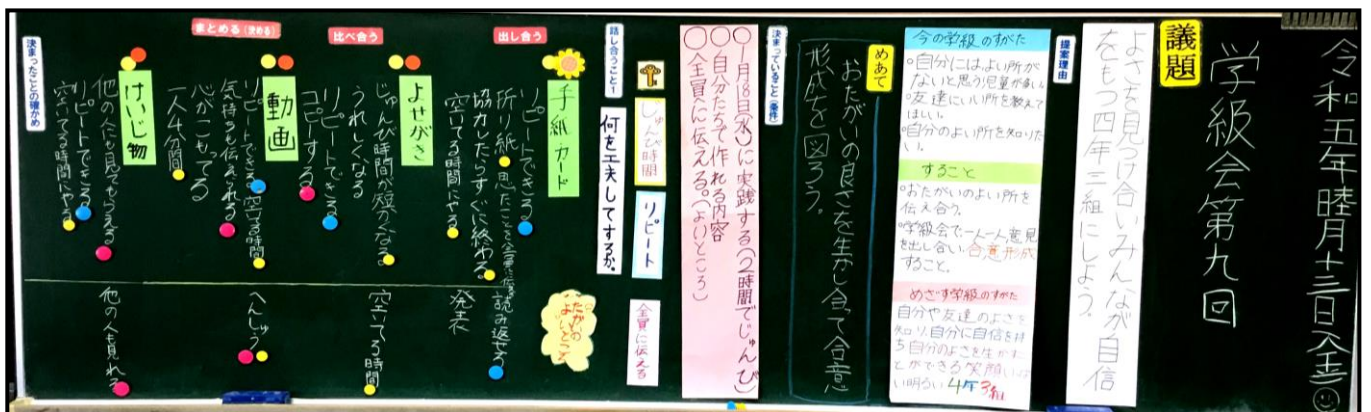 令和五年睦月十三日(金)
学級会第九回
議題
よさを見つけ合いみんなが自信
をもつ四年三組にしよう。
提案理由
今の学級のすがた
・自分には、よい所が
ないと思う児童が多い。
・友達にいい所を教えて
ほしい。
・自分のよい所を知りた
い。
すること
・おたがいのよい所を
伝え合う。
・学級会で一人一人意見
を出し合い、合意形成
すること。
めざす学級のすがた
自分や友達のよさを
知り、自分に自信を持
ち自分のよさを生かすこ
とができる笑顔いっぱ
い明るい4年3組
めあて
おたがいの良さを生かし合って合意
形成を図ろう。
決まっていること(条件)
〇一月18日(水)に実践する(2時間でじゅんび)
〇自分たちで作れる内容
〇全員に伝える。(よいところ)
話し合うこと1
何を工夫してするか。
じゅんび時間
リピート
全員に伝える
出し合う
比べ合う
まとめる(決める)
決まったことの確かめ
手紙カード
リピートできる
折り紙
協力したらすぐに終わる
空いてる時間にやる
読み返せる
発表
よせがき
じゅんび時間が短かくなる。
うれしくなる
リピートできる
コピーする
空いてる時間
動画
リピートできる。空いてる時間
気持ちも伝えられる
心がこもってる
一人4分間
へんしゅう
けいじ物
他の人にも見てもらえる
リピートできる
空いてる時間にやる
他の人も見れる